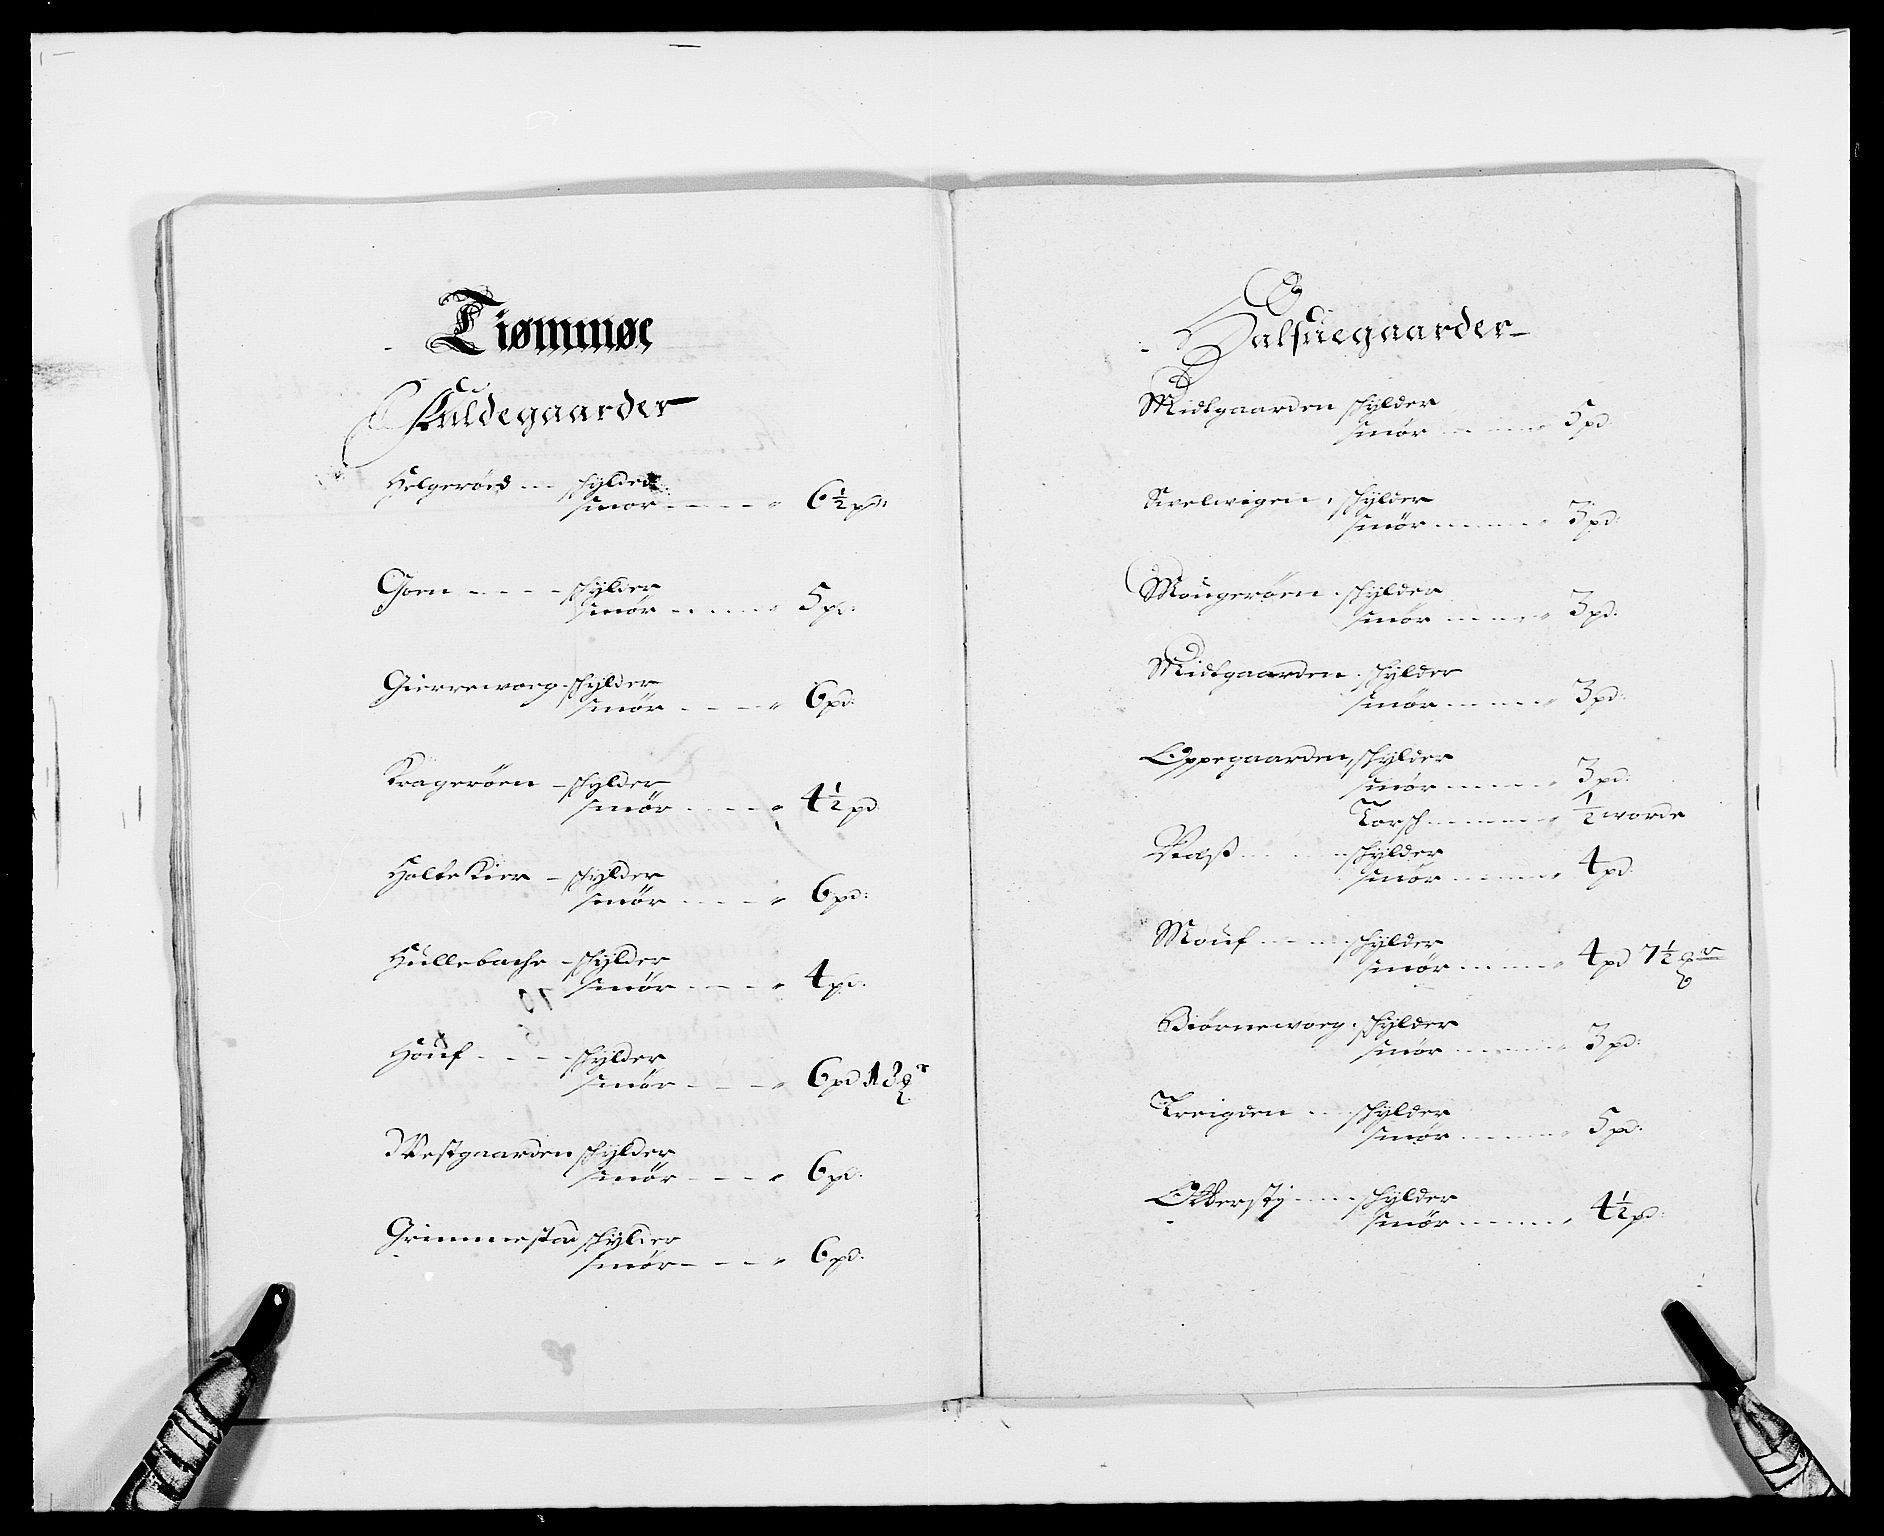 Tiømmøe
Fuldegaarder
Helgeröed - - schylder
smør - - - - 6½ pd:
Goen - - - - schylder
smör - - - - 5 pd:
Gierrewoeg schylder
smör - - - - 6 pd:
Krageröen - schylder
smör - - - - 4½ pd
Holtekier - schylder
smör - - - - 6 pd:
Hullebache - schylder
smör - - - - 4 pd:
Houf - - - - schylder
smör - - - - 6 pd 18
Westgaarden schylder
smör - - - - 6 pd:
Grimmestad schylder
smör - - - - 6 pd:
Halfuegaarder
Midtgaarden schylder
smör - - - - 5 pd:
Svelwigen schylder
smör - - - - 3 pd:
Mougeröen schylder
smör - - - - 3 pd:
Midtgaarden schylder
smör - - - - 3 pd:
Oppegaarden schylder
smör - - - - 3 pd:
Torsch - - - - ½ worde
schylder
smör - - - - 4 pd:
Mouf - - - - schylder
smör - - - - 4 pd 7½
Biörnewoeg schylder
smör - - - - 3 pd:
Kreigden - - schylder
smör - - - - 5 pd:
schylder
smör - - - - 4½ pd: